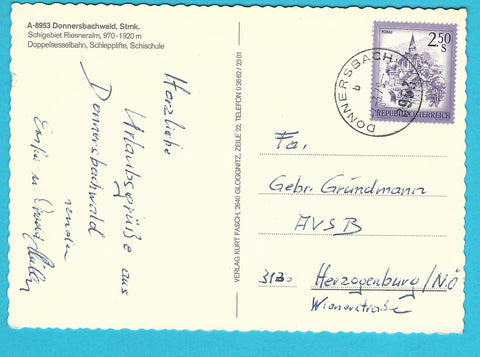 A-8953 Donnersbachwald, Stmk.
Schigebiet Riesneralm, 970-1920 m
Doppelsesselbahn, Schlepplifte, Schischule
Herzliche
Urlaubsgrüße aus
Donnersbachwald
senden
VERLAG KURT FASCH, 2640 GLOGGNITZ, ZEILE 22, TELEFON 0 26 62 / 23 01
2.50
S
REPUBLIK ÖSTERREICH
DONNERSBACH
Fa.
Gebr. Gründmann
AVSB
3130 Herzogenburg/N.Ö
Wienerstraße